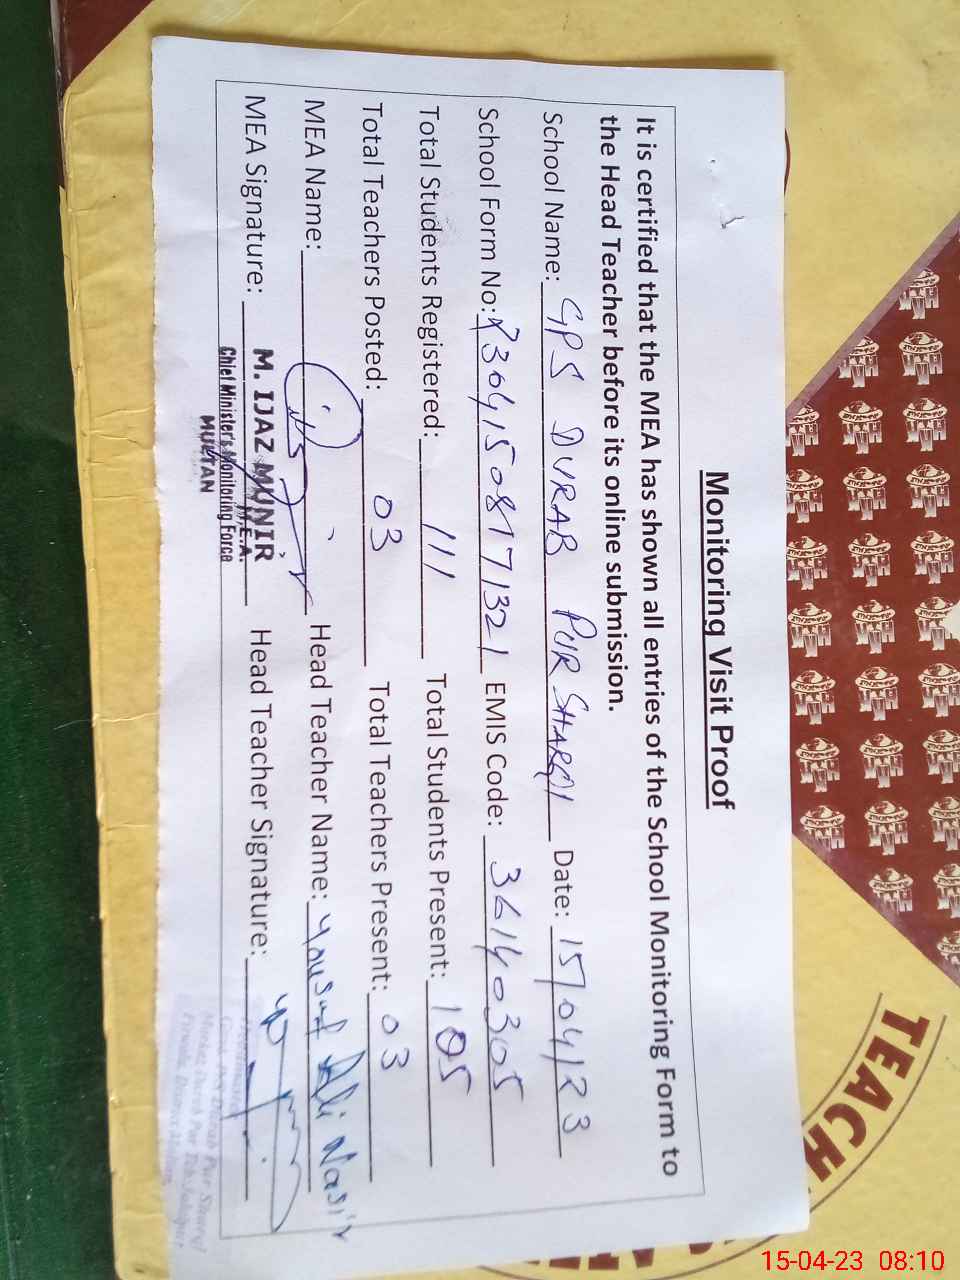 Monitoring Visit Proof
It is certified that the MEA has shown all entries of the School Monitoring Form to
the Head Teacher before its online submission.
School Name: GPS DURAB PUR SHARQI Date: 15/04/23
School Form No: EMIS Code: 36140305
Total Students Registered: 111 Total Students Present: 105
Total Teachers Posted: 03 Total Teachers Present: 03
MEA Name: Head Teacher Name: Yousuf Ali Nasir
MEA Signature: Head Teacher Signature:
M. IJAZ MUNIR
M.E.A.
Chief Minister's Monitoring Force
MULTAN
TEACH
15-04-23 08:10